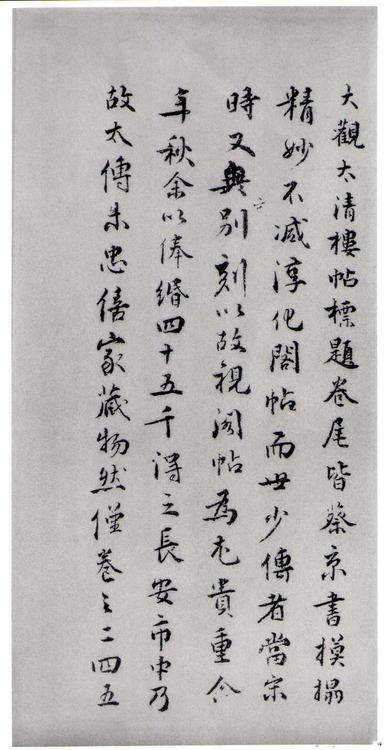 大觀太清樓帖標題卷尾皆蔡京書模搨
精妙不減淳化閣帖而世少傳者當宋
時又無別刻以故視閣帖為尤貴重今
年秋余以俸緡四十五千得之長安市中乃
故太傅朱忠僖家藏物然僅卷之二四五